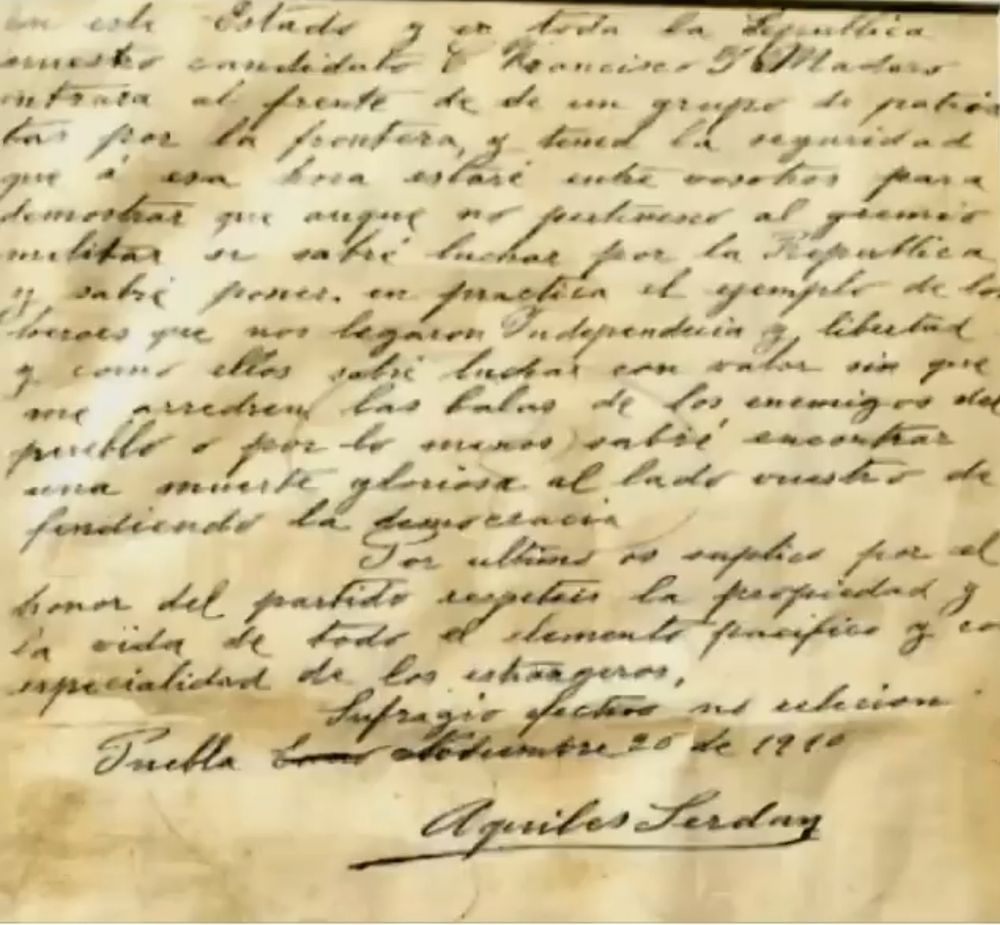 en este Estado y en toda la Republica
nuestro candidato C Francisco I Madero
entrara al frente de de un grupo de patrio
tas por la frontera, y tened la seguridad
que á esa hora estaré entre vosotros para
demostrar que auque no pertenesco al gremio
militar si sabré luchar por la Republica
y sabré poner. en practica el ejemplo de los
heroes que nos legaron Independecia y libertad
y como ellos sabré luchar con valor sin que
me arredren las balas de los enemigos del
pueblo o por lo menos sabré encontrar
una muerte gloriosa al lado vuestro de
fendiendo la democracia
Por ultimo os suplico por el
honor del partido respeteis la propiedad y
la vida de todo el elemento pacifico y en
especialidad de los estrangeros.
Sufragio efectivo no relecion
Puebla Noviembre 20 de 1910
Aquiles Serdan